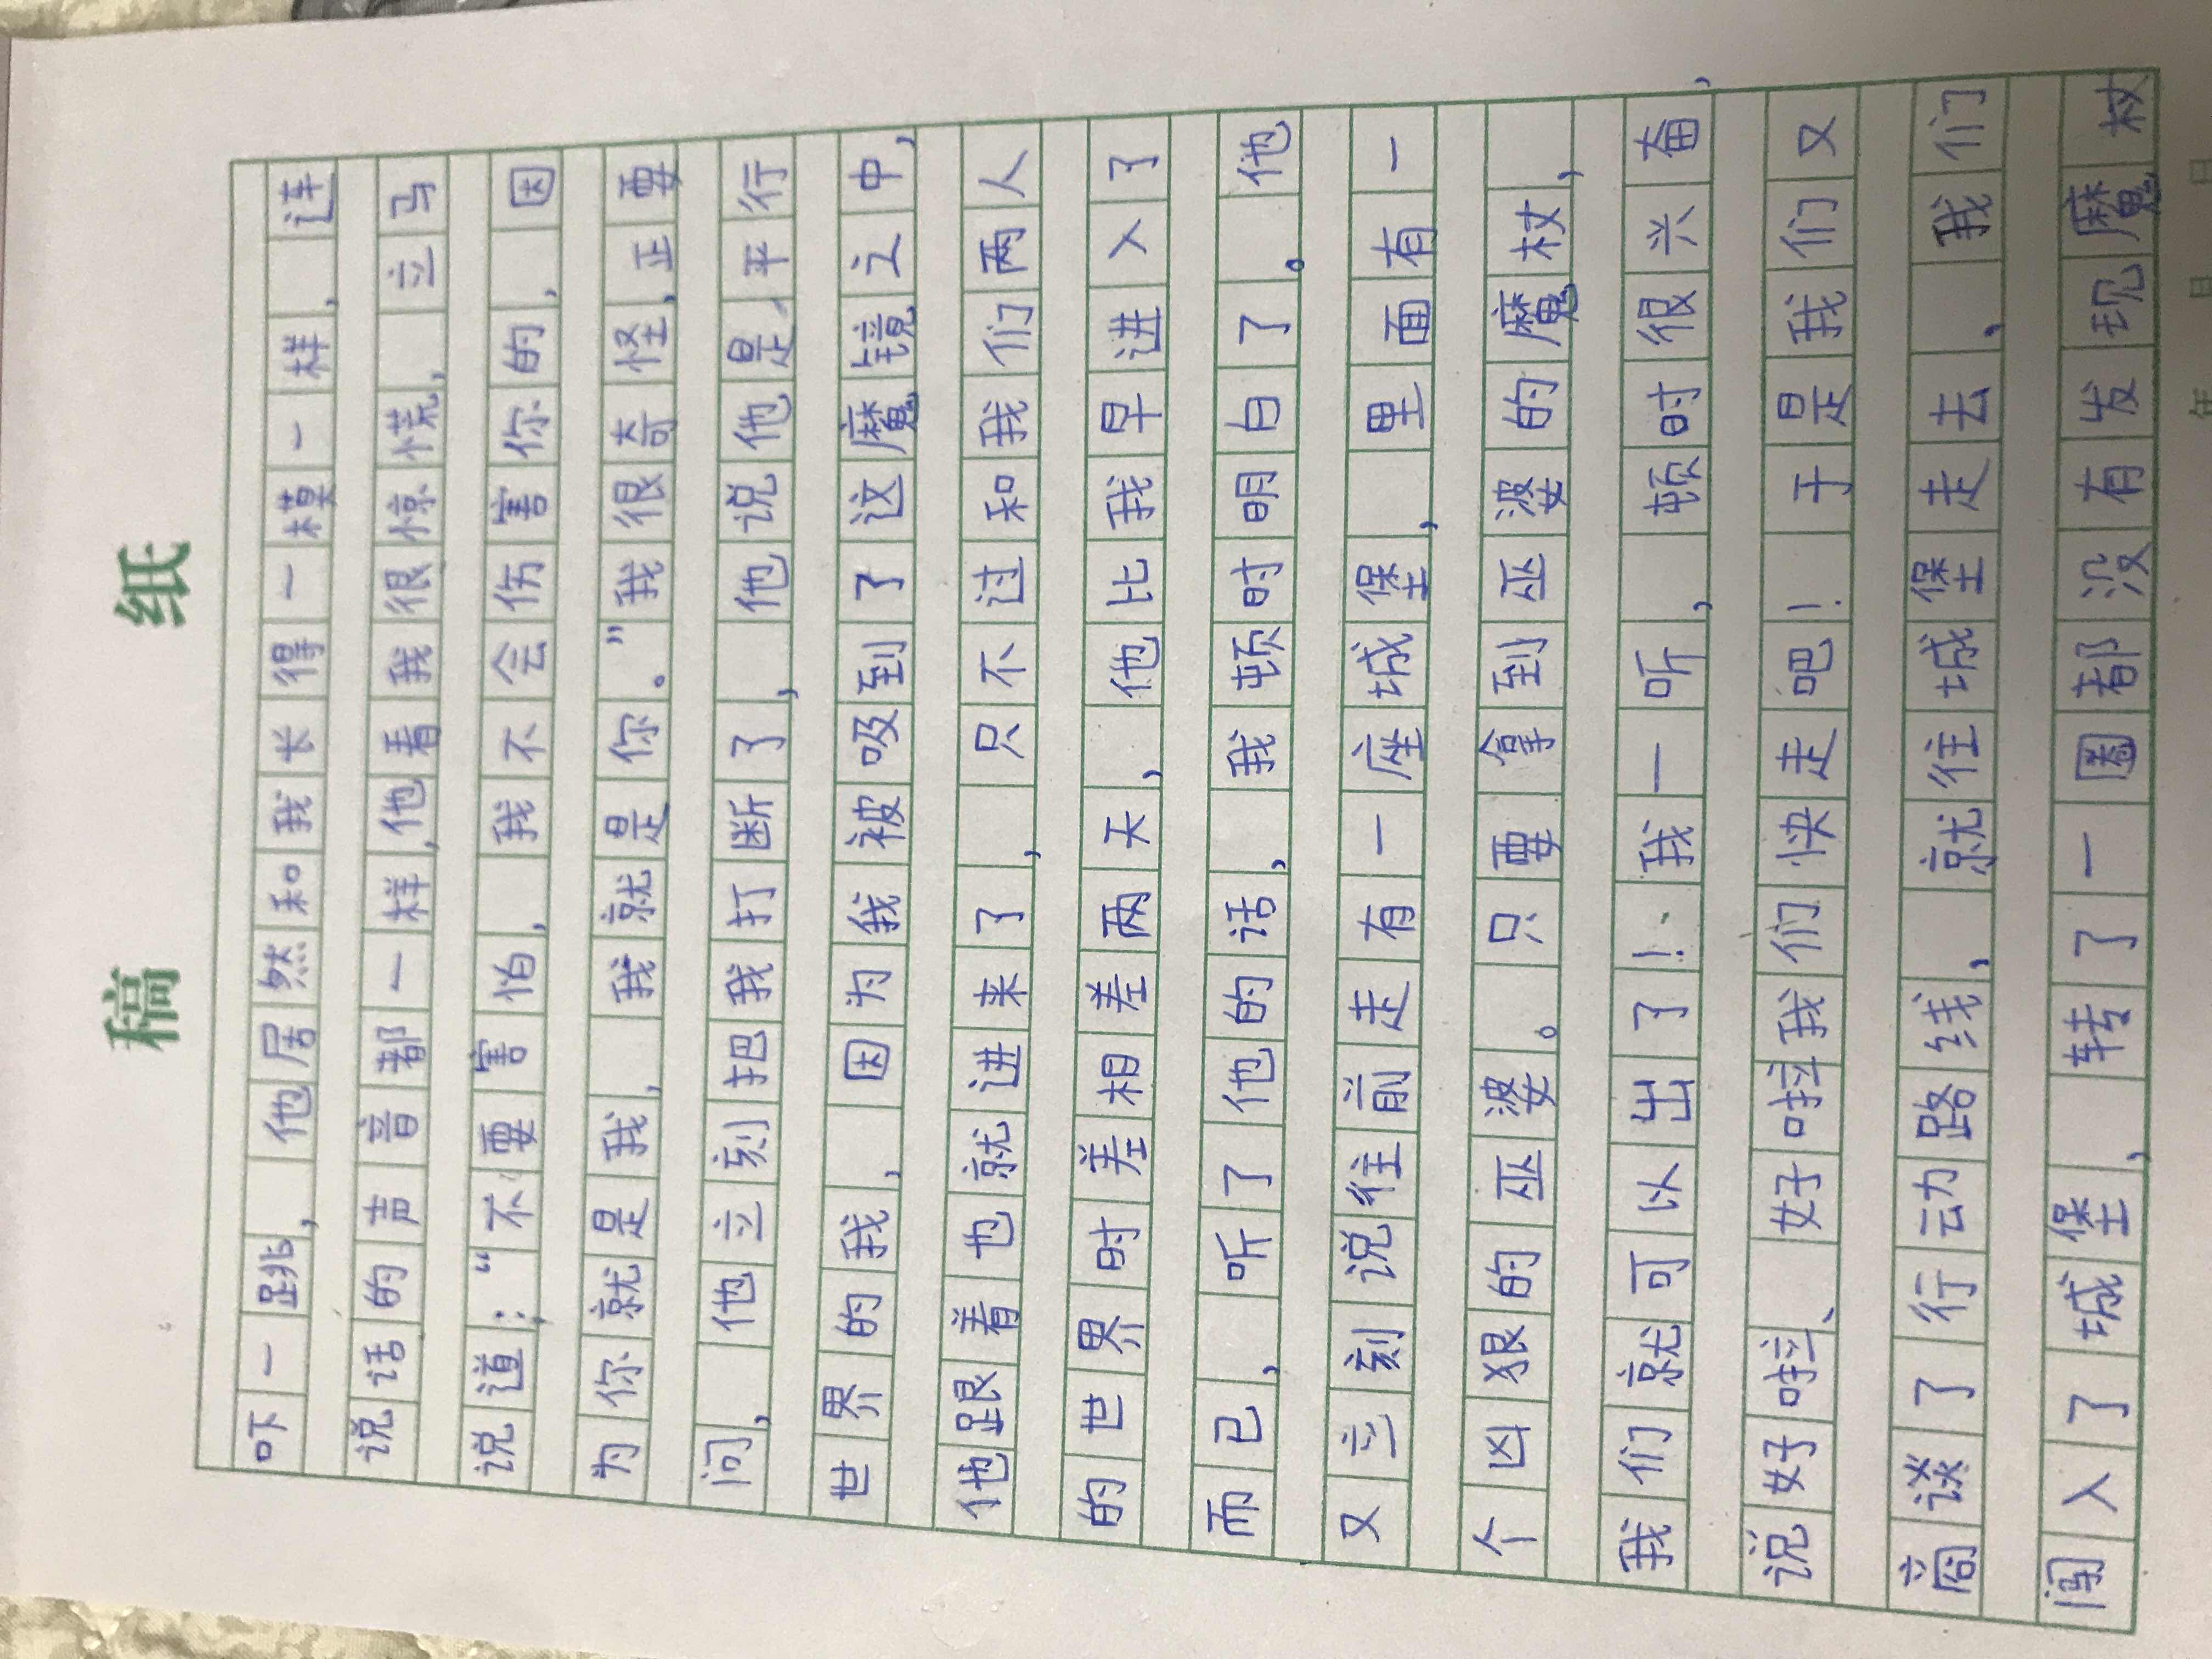 稿纸
吓一跳，他居然和我长得一模一样，连
说话的声音都一样，他看我很惊慌，立马
说道：“不要害怕，我不会伤害你的，因
为你就是我，我就是你。”我很奇怪，正要
问，他立刻把我打断了，他说他是平行
世界的我，因为我被吸到了这魔镜之中，
他跟着也就进来了，只不过和我们两人
的世界时差相差两天，他比我早进入了
而已，听了他的话，我顿时明白了。他
又立刻说往前走有一座城堡，里面有一
个凶狠的巫婆。只要拿到巫婆的魔杖，
我们就可以出了！我一听，顿时很兴奋，
说好哇、好哇我们快走吧！于是我们又
商谈了行动路线，就往城堡走去，我们
闯入了城堡，转了一圈都没有发现魔杖
年 月 日